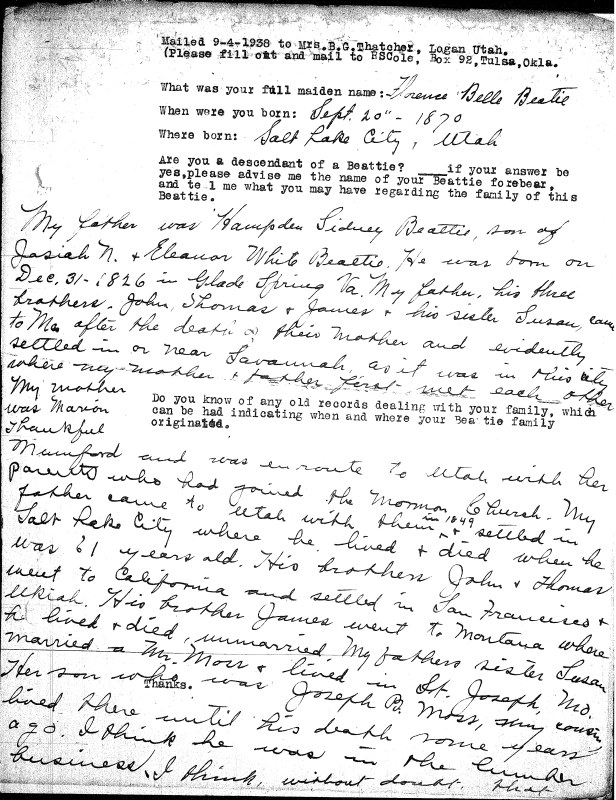 Mailed 9-4-1938 to Mrs.B.G.Thatcher, Logan Utah.
(Please fill out and mail to RSCole, Box 92,Tulsa,Okla.
What was your full maiden name: Florence Belle Beatie
When were you born: Sept. 20" - 1870
Where born: Salt Lake City, Utah
Are you a descendant of a Beattie? ____if your answer be
yes,please advise me the name of your Beattie forebear,
and te l me what you may have regarding the family of this
Beattie.
My father was Hampden Sidney Beattie, son of
Josiah N. & Eleanor White Beattie. He was born on
Dec. 31 - 1826 in Glade Spring Va. My father, his three
brothers - John, Thomas & James & his sister Susan, came
to Mo. after the death of their mother and evidently
settled in or near Savannah, as it was in this city
where my mother & father first met each other
My mother
was Marion
Thankful
Do you know of any old records dealing with your family, which
can be had indicating when and where your Bea tie family
originated.
Mumford and was enroute to Utah with her
parents who had joined the Mormon Church. My
father came to Utah with them in 1849 & settled in
Salt Lake City where he lived & died when he
was 61 years old. His brothers John & Thomas
went to California and settled in San Francisco &
Ukiah. His brother James went to Montana where
he lived & died, unmarried. My fathers sister Susan
married a Mr. Moss & lived in St. Joseph, Mo.
Her son who was Joseph B. Moss, my cousin
Thanks.
lived there until his death some years
ago. I think he was in the lumber
business, I think, without doubt, that